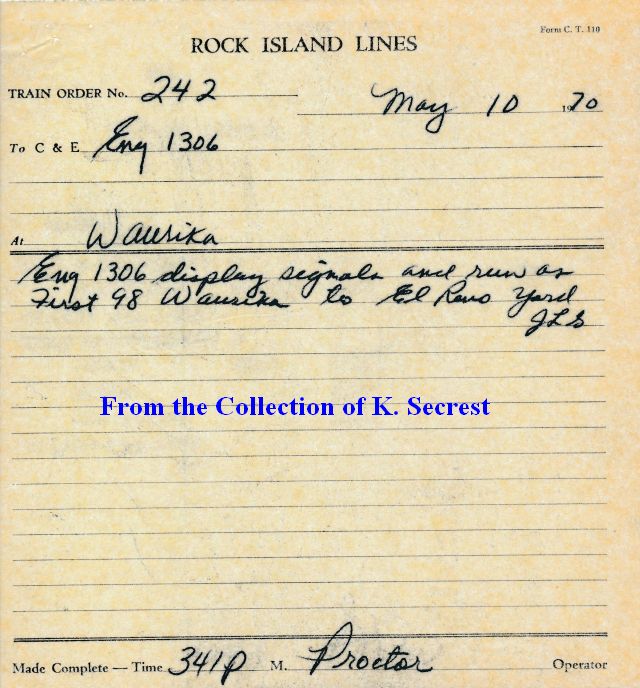 Form C. T. 110
ROCK ISLAND LINES
TRAIN ORDER No. 242
May 10 1970
To C & E Eng 1306
At Waurika
Eng 1306 display signals and run as
First 98 Waurika to El Reno Yard
JLS
From the Collection of K. Secrest
Made Complete — Time 341P M. Proctor Operator